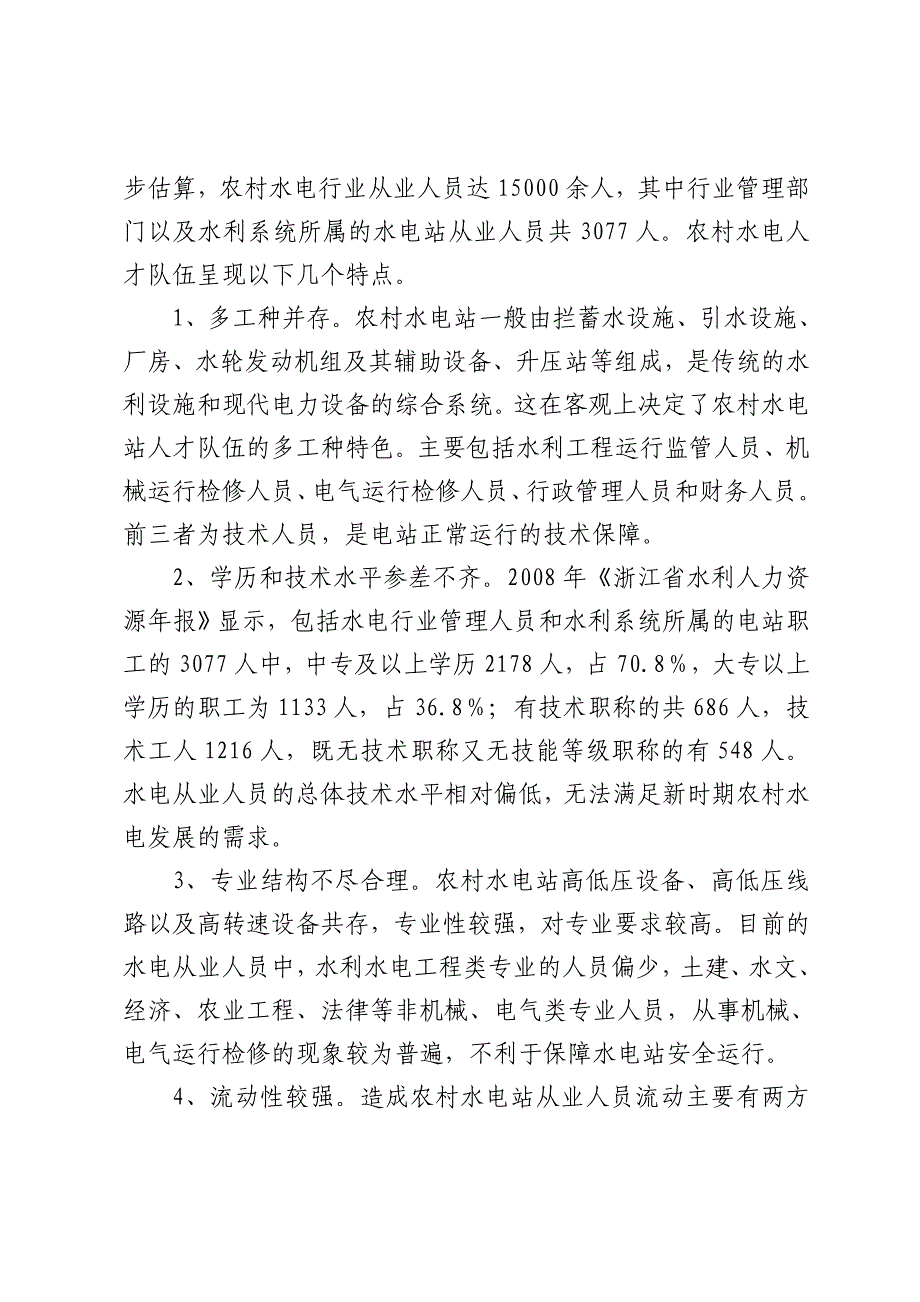 步估算，农村水电行业从业人员达 15000 余人，其中行业管理部
门以及水利系统所属的水电站从业人员共 3077 人。农村水电人
才队伍呈现以下几个特点。
1、多工种并存。农村水电站一般由拦蓄水设施、引水设施、
厂房、水轮发动机组及其辅助设备、升压站等组成，是传统的水
利设施和现代电力设备的综合系统。这在客观上决定了农村水电
站人才队伍的多工种特色。主要包括水利工程运行监管人员、机
械运行检修人员、电气运行检修人员、行政管理人员和财务人员。
前三者为技术人员，是电站正常运行的技术保障。
2、学历和技术水平参差不齐。2008 年《浙江省水利人力资
源年报》显示，包括水电行业管理人员和水利系统所属的电站职
工的 3077 人中，中专及以上学历 2178 人，占 70.8%，大专以上
学历的职工为 1133 人，占 36.8%；有技术职称的共 686 人，技
术工人 1216 人，既无技术职称又无技能等级职称的有 548 人。
水电从业人员的总体技术水平相对偏低，无法满足新时期农村水
电发展的需求。
3、专业结构不尽合理。农村水电站高低压设备、高低压线
路以及高转速设备共存，专业性较强，对专业要求较高。目前的
水电从业人员中，水利水电工程类专业的人员偏少，土建、水文、
经济、农业工程、法律等非机械、电气类专业人员，从事机械、
电气运行检修的现象较为普遍，不利于保障水电站安全运行。
4、流动性较强。造成农村水电站从业人员流动主要有两方